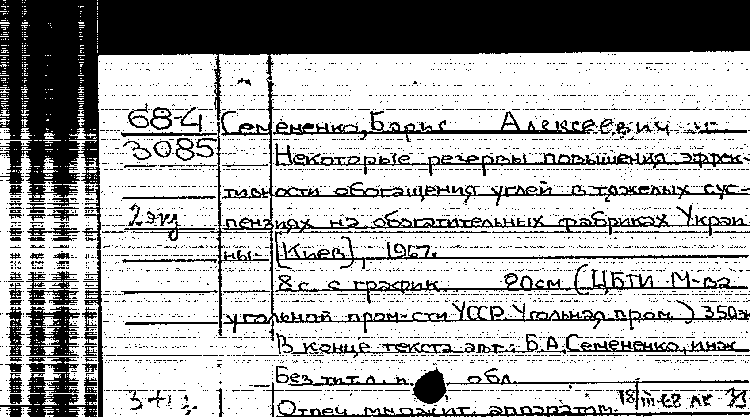 68-4 Семененко, Борис Алексеевич и
3085 Некоторые резервы повышения эффек-
тивности обогащения углей в тяжелых сус-
2 экз пензиях на обогатительных фабриках Украи
ны. [Киев], 1967.
8 с. с график 20см (ЦБТИ М-ва
угольной пром-сти УССР. Угольная пром.) 350э
В конце текста авт.: Б.А. Семененко, инж
Без тит. л. и обл.
3+1 Отпеч. множит. аппаратом. 18/III-68